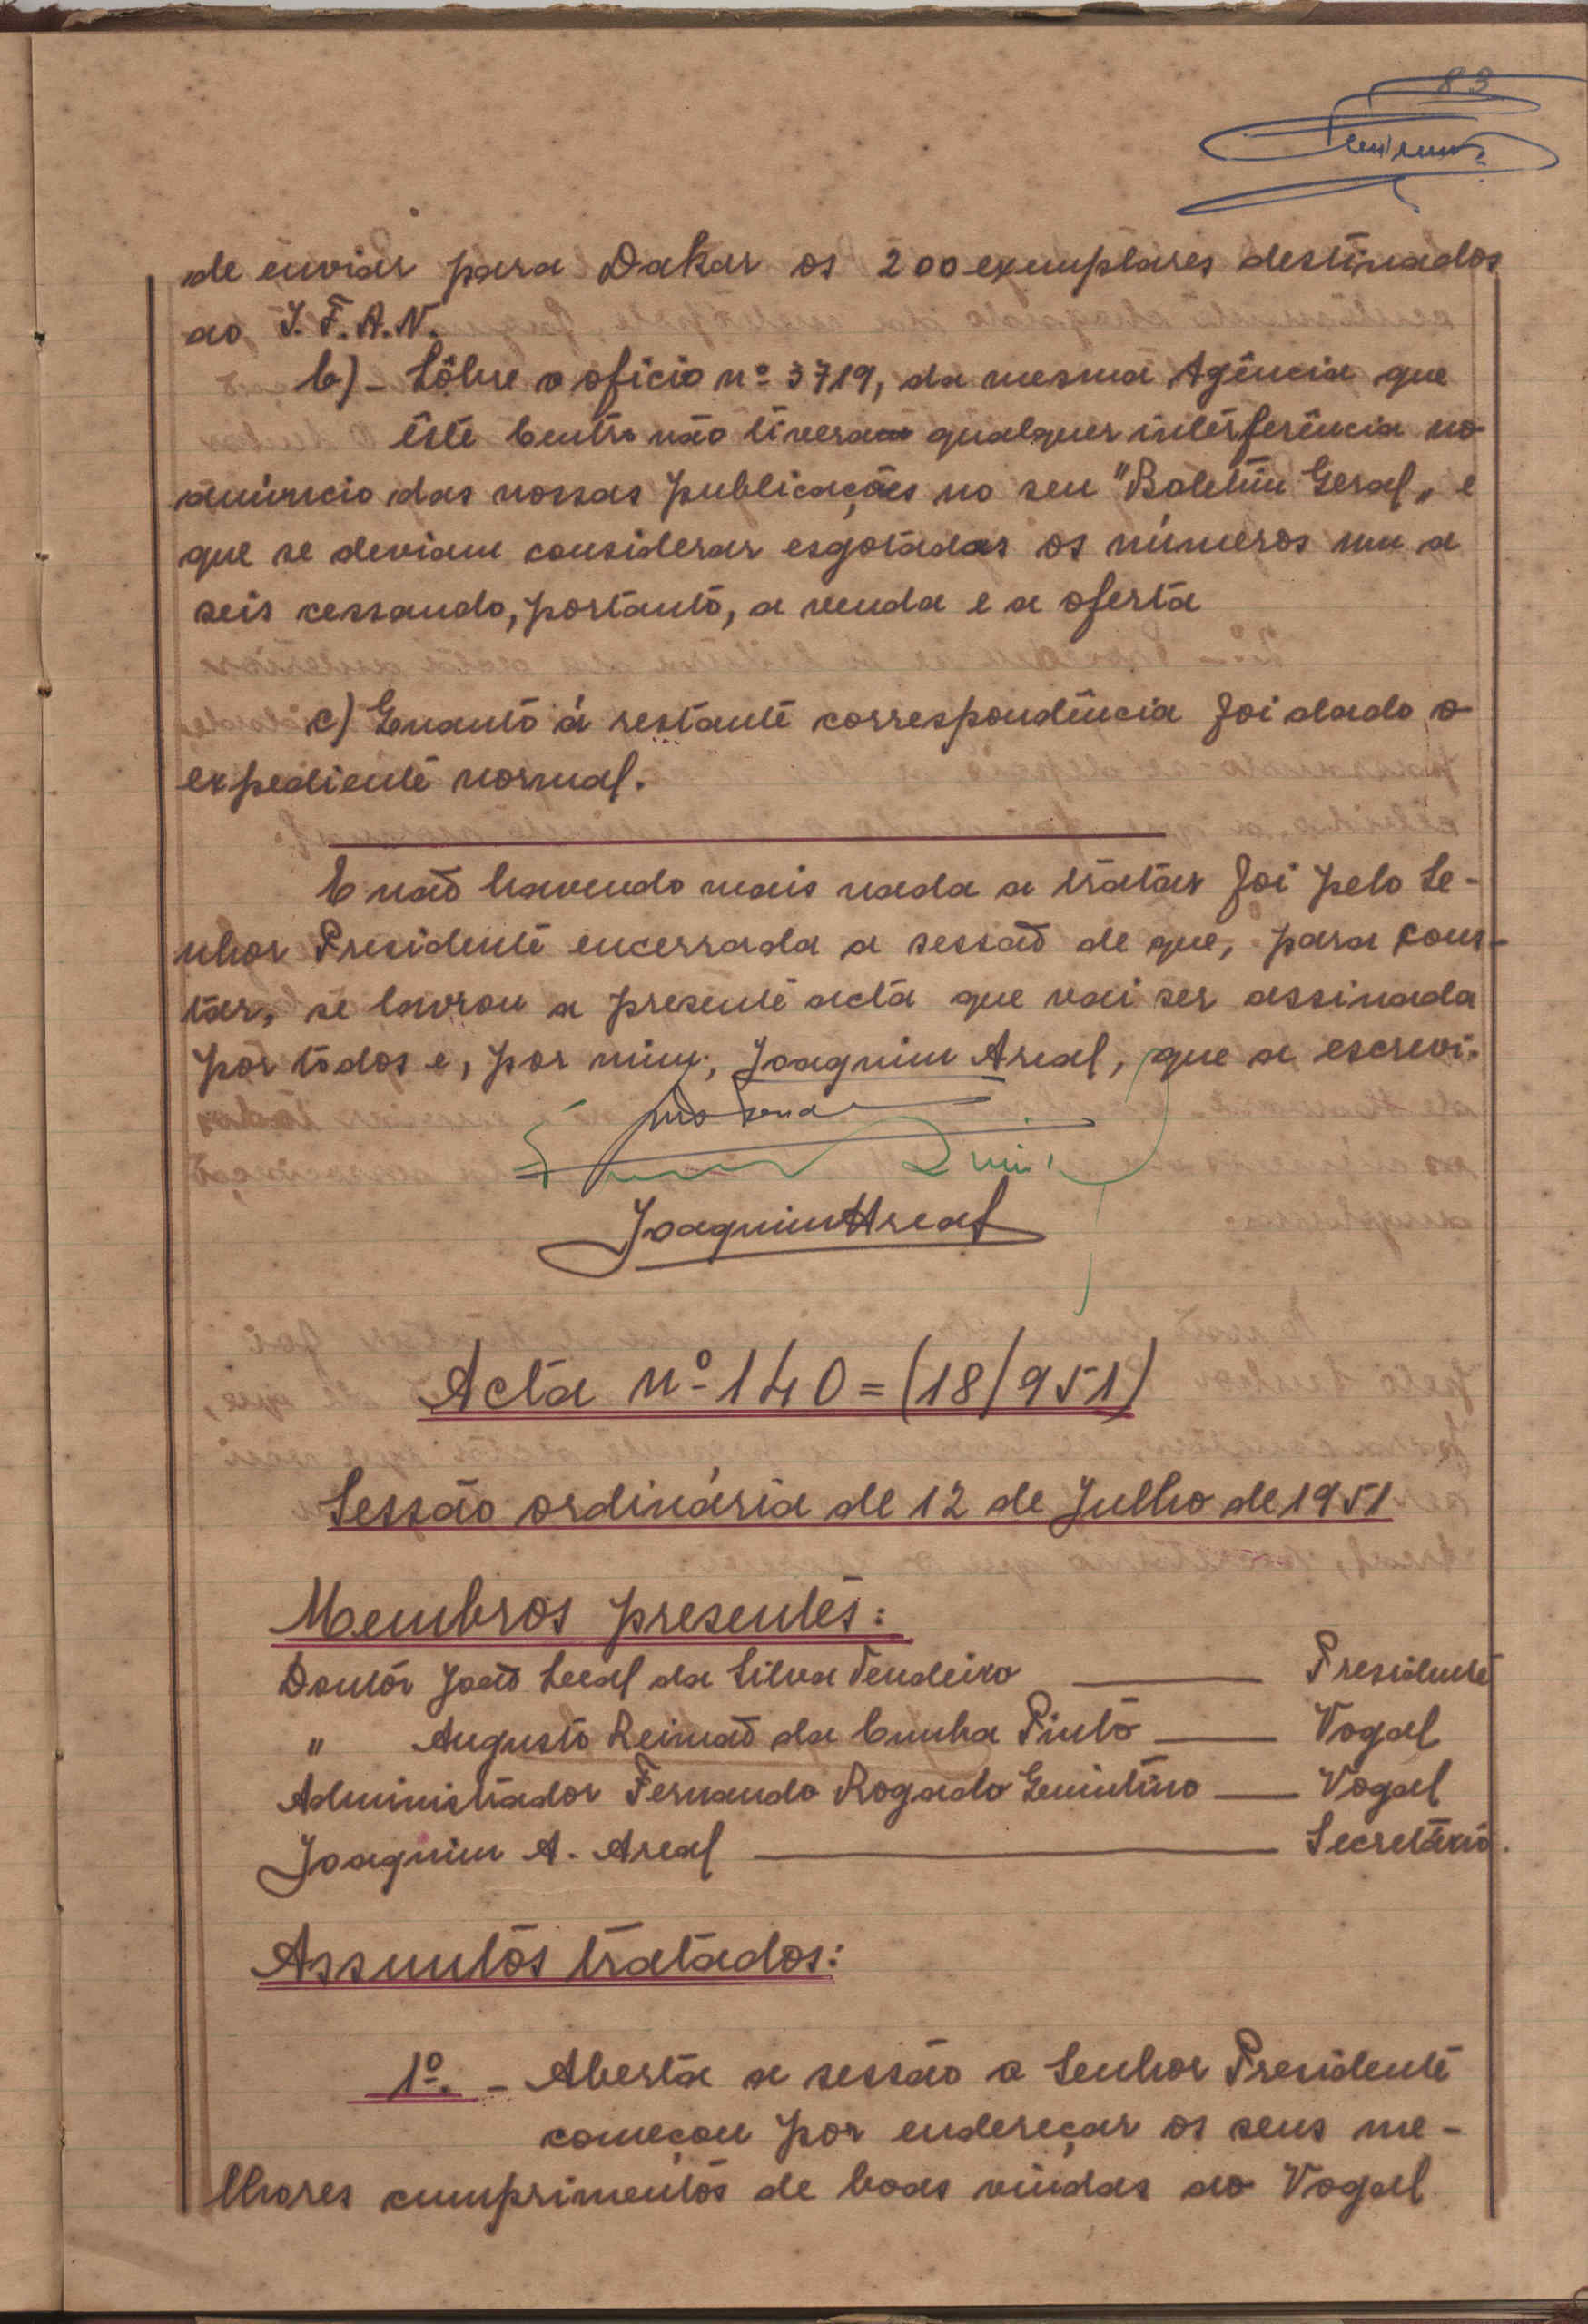 83
de enviar para Dakar os 200 exemplares destinados
ao I.F.A.N.
b) - Sôbre o ofício nº 3719, da mesma Agência que
êste Centro não tivera qualquer interferência no
anúncio das nossas publicações no seu "Boletim Geral" e
que se deviam considerar esgotadas os números um a
seis cessando, portanto, a venda e a oferta
c) Quanto á restante correspondência foi dado o
expediente normal.
E não havendo mais nada a tratar foi pelo Se-
nhor Presidente encerrada a sessão de que, para cons-
tar, se lavrou a presente acta que vai ser assinada
por todos e, por mim, Joaquim Areal, que a escrevi.
Joaquim Areal
Acta nº 140 = (18/951)
Sessão ordinária de 12 de Julho de 1951
Membros presentes:
Doutor João Leal da Silva Tendeiro — Presidente
" Augusto Reimão da Cunha Pinto — Vogal
Administrador Fernando Rogado Quintino — Vogal
Joaquim A. Areal — Secretário.
Assuntos tratados:
1º. - Aberta a sessão o Senhor Presidente
começou por endereçar os seus me-
lhores cumprimentos de boas vindas ao Vogal